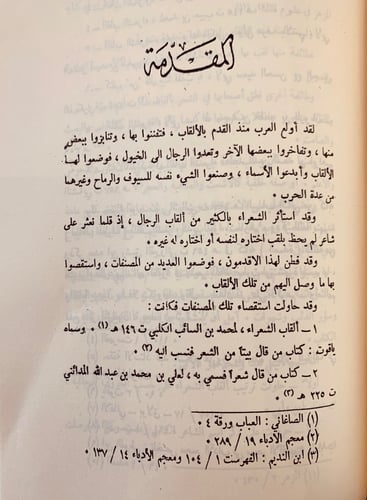 المقدّمة
لقد أولع العرب منذ القدم بالألقاب ، فتفننوا بها ، وتنابزوا ببعض
منها ، وتفاخروا ببعضها الآخر وتعدوا الرجال الى الخيول ، فوضعوا لهـا
الألقاب وأبدعوا الأسماء ، وصنعوا الشيء نفسه للسيوف والرماح وغيرهما
من عدة الحرب ٠
وقد استأثر الشعراء بالكثير من ألقاب الرجال ، اذ قلما نعثر على
شاعر لم يحظ بلقب اختاره لنفسه أو اختاره له غيره ٠
وقد فطن لهذا الاقدمون ، فوضعوا العديد من المصنفات ، واستقصوا
بها ما وصل اليهم من تلك الألقاب ٠
وقد حاولت استقصاء تلك المصنفات فكانت :
١ ــ ألقاب الشعراء ، لمحمد بن السائب الكلبي ت ١٤٦ هـ (١) ٠ وسماه
ياقوت : كتاب من قال بيتاً من الشعر فنسب اليه (٢) ٠
٢ ــ كتاب من قال شعراً فسمي به ، لعلي بن محمد بن عبدالله المدائني
ت ٢٢٥ هـ (٣) ٠
(١) الصاغاني : العباب ورقة ٤ ٠
(٢) معجم الأدباء ١٩ / ٢٨٩ ٠
(٣) ابن النديم : الفهرست ١ / ١٠٤ ومعجم الأدباء ١٤ / ١٣٧ ٠